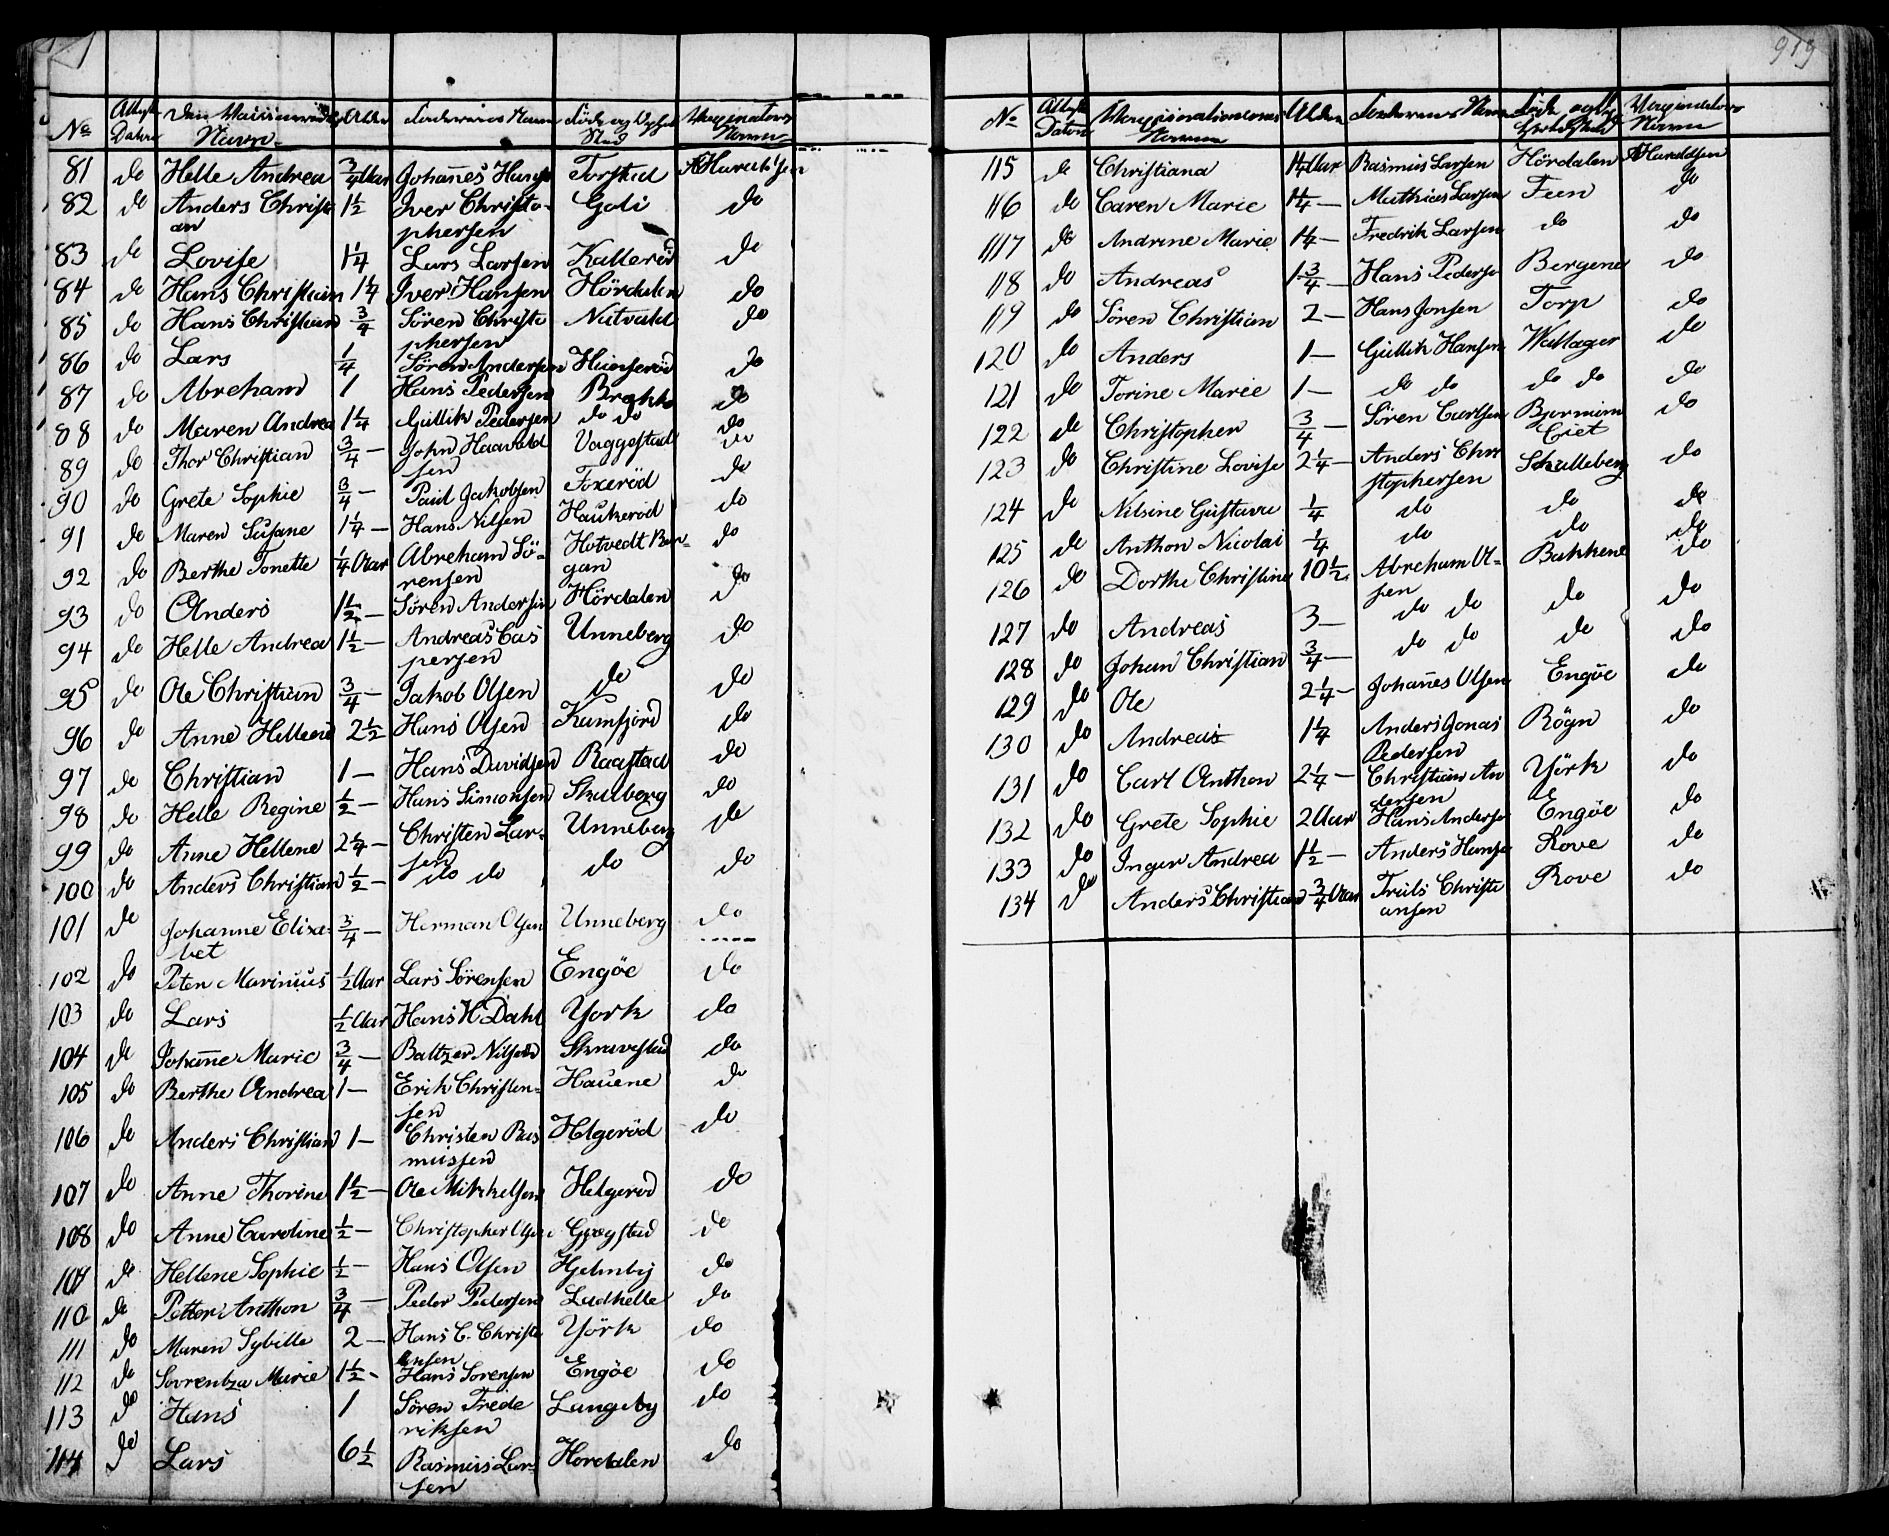 919
No Attest Datum Navn Alder Faderens Navn Føde og Opholds Sted Vaccinators Navn
81 do Helle Andrea 3/4 Aar Johan̄es Hans Torstad A Haraldsen
82 do Anders Christi 1 1/2 Iver Christo- Goli do
an phersen
83 do Lovise 1 1/4 Lars Larsen Kallerød do
84 do Hans Christian 1 1/4 Iver Hansen Hørdalen do
85 do Hans Christian 3/4 Søren Christo Natvald do
phersen
86 do Lars 1/4 Søren Andersen Hunserød do
87 do Abraham 1 Hans Pedersen Brekke do
88 do Maren Andrea 1 1/4 Gullik Pedersen do do do
89 do Thor Christian 3/4 — John Haavald Vaggestad do
sen
90 do Grete Sophie 3/4 — Paul Jakobsen Foxerød do
91 do Maren Susane 1 1/4 — Hans Nilsen Haukerød do
92 do Berthe Tonette 1/4 Aar Abraham Sø- Hotvedt Ber- do
rensen gan
93 do Anders 1 1/2 — Søren Andersen Hørdalen do
94 do Helle Andrea 1 1/2 — Andreas Cas Unneberg do
persen
95 do Ole Christian 3/4 — Jakob Olsen do do
96 do Anne Hellene 2 1/2 Hans Olsen Kamfjord do
97 do Christian 1 — Hans Davidsen Raastad do
98 do Helle Regine 1/2 — Hans Simonsen Skalberg do
99 do Anne Hellene 2 1/4 — Christen Lar- Unneberg do
sen
100 do Anders Christian 1/2 — do do do do
101 do Johanne Elisa- 3/4 — Herman Olsen Unneberg do
bet
102 do Peter Marinius 1/2 Aar Lars Sørensen Engøe do
103 do Lars 1/2 Aar Hans H Dahl York do
104 do Johan̄e Marie 3/4 — Baltzer Nilsen Skravestad do
105 do Berthe Andrea 1 — Erik Christen- Hauene do
sen
106 do Anders Christian 1 — Christen Ras Helgerød do
mussen
107 do Anne Thorine 1 1/2 — Ole Mikkelsen Helgerød do
108 do Anne Caroline 1/2 — Christopher Olsen Gjøgstad do
109 do Hellene Sophie 1/2 — Hans Olsen Hjelmby do
110 do Petter Anthon 3/4 — Peder Pedersen Ladhelle do
111 do Maren Sybille 2 — Hans C. Christi Yørk do
ansen
112 do Lovrentza Marie 1 1/2 - Hans Sørensen Engøe do
113 do Hans 1 Søren Frede Langeby do
riksen
114 do Lars 6 1/2 Rasmus Lar Hordalen do
sen
No Attest Datum Vaccinationernes Navn Alder Faderens Navn Vaccinators Navn
115 do Christiana 1 1/4 Aar Rasmus Larsen Hørdalen A Haraldsen
116 do Caren Marie 1 1/4 — Mathias Larsen Feen do
117 do Andrine Marie 1 1/4 — Fredrik Larsen do do
118 do Andreas 1 3/4 — Hans Pederse Bergene do
119 do Søren Christian 2 — Hans Jonsen Torp do
120 do Anders 1 — Gullik Hansen Wallager do
121 do Torine Marie 1 — do do do do do
122 do Christopher 3/4 — Søren Carlsen Bjørnum do
Eiet
123 do Christine Lovise 2 1/4 — Anders Chri Skalleberg do
stophersen
124 do Nilsine Gustava 1/4 do do do
125 do Anthon Nicolai 1/4 do do do
126 do Dorthe Christine 10 1/2 Abraham Ol- Bakkene do
sen
127 do Andreas 3 — do do do do
128 do Johan Christian 3/4 — do do do do
129 do Ole 2 1/4 — Johan̄es Olsen Engøe do
130 do Andreas 1 1/4 Anders Jonas Røgn do
Pedersen
131 do Carl Anthon 2 1/4 — Christian An Yørk do
dersen
132 do Grete Sophie 2 Aar Hans Anderse Engøe do
133 do Inger Andrea 1 1/2 — Anders Hanse Rove do
134 do Anders Christian 3/4 Aar Truls Christi Rove do
ansen